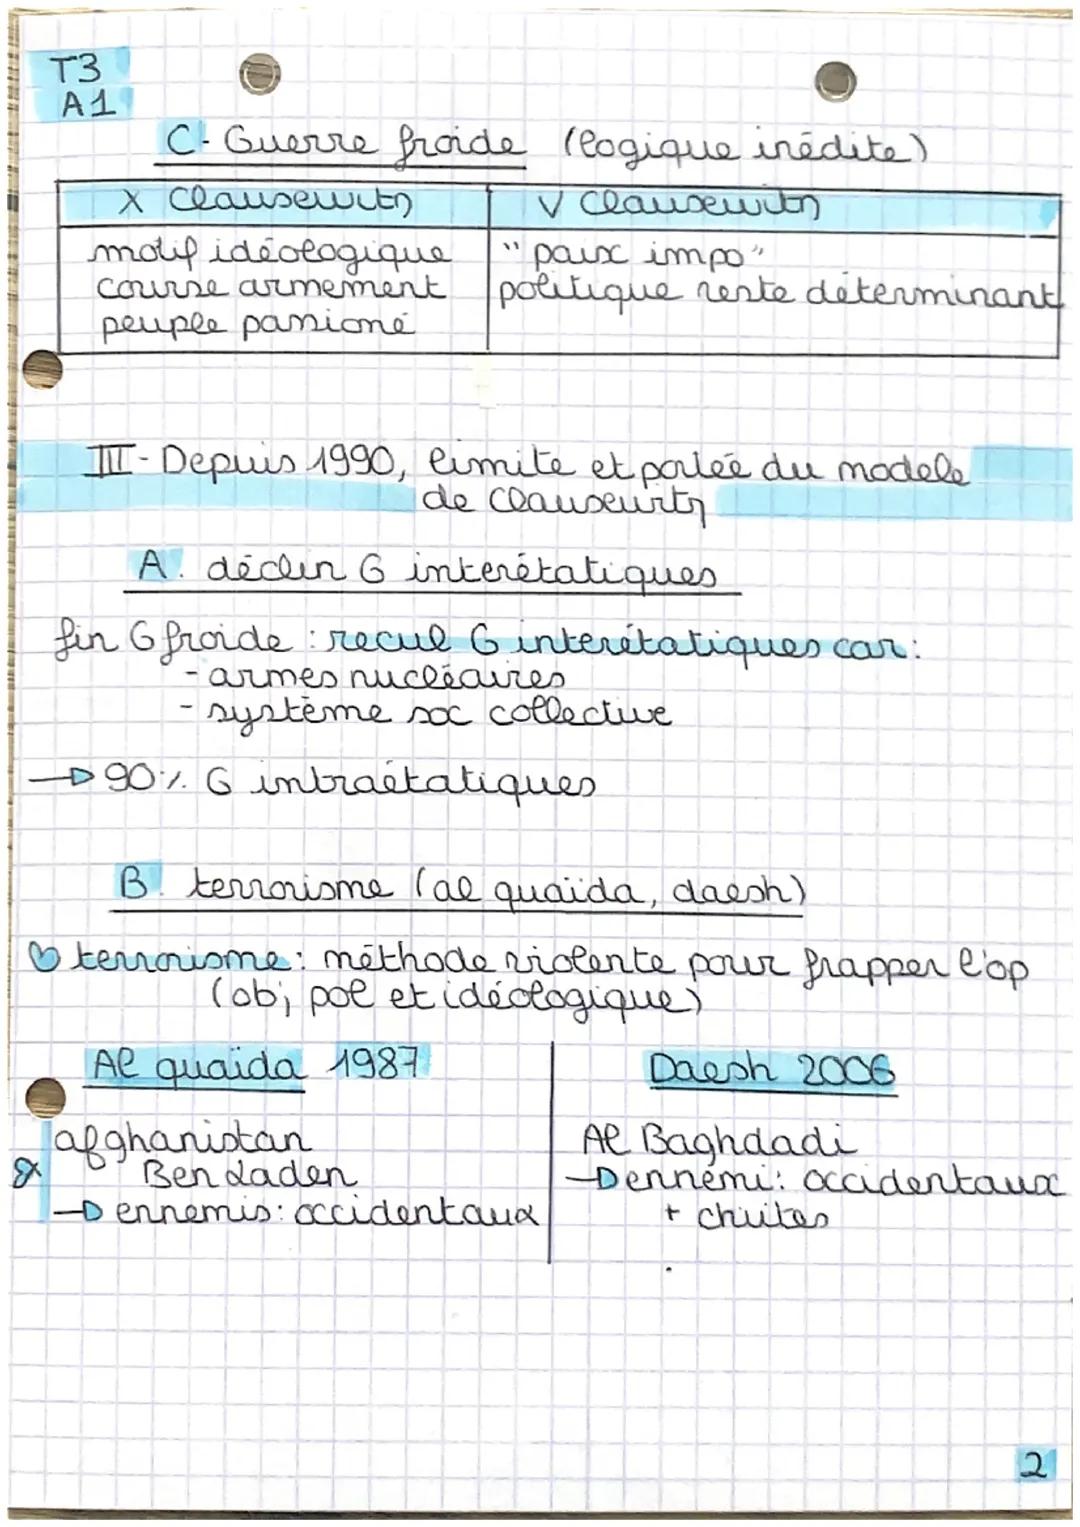 T3
A1
C- Guerre froide (logique inédite)
X Clausewitz
V Clausewitz
motif idéologique
course armement
peuple passioné
"paix impo"
politique reste déterminant
III- Depuis 1990, limite et portée du modele
de Clausewitz
A. déclin G interétatiques
fin G froide : recul G interétatiques car:
- armes nucléaires
- système soc collective
→ 90% G intraétatiques
B. terrorisme (al quaïda, daesh)
♡ terrorisme: méthode violente pour frapper l'op
(obj pol et idéologique)
Al quaïda 1987
afghanistan
Ben Laden
→ ennemis: occidentaux
Daesh 2006
Al Baghdadi
→ ennemi: occidentaux
+ chiites
2